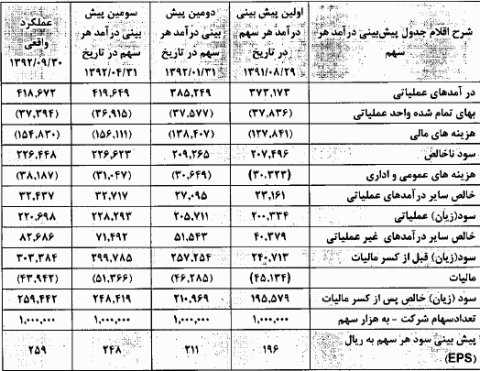 شرح اقلام جدول پیش‌بینی درآمد هر سهم	اولین پیش بینی درآمد هر سهم در تاریخ ۱۳۹۱/۰۸/۲۹	دومین پیش بینی درآمد هر سهم در تاریخ ۱۳۹۲/۰۱/۳۱	سومین پیش بینی درآمد هر سهم در تاریخ ۱۳۹۲/۰۴/۳۱	عملکرد واقعی ۱۳۹۲/۰۹/۳۰
درآمدهای عملیاتی	۳۷۳,۱۷۳	۳۸۵,۲۴۹	۴۱۹,۶۴۹	۴۱۸,۶۷۲
بهای تمام شده واحد عملیاتی	(۳۷,۸۳۶)	(۳۷,۵۷۷)	(۳۶,۹۱۵)	(۳۷,۳۹۴)
هزینه های مالی	(۱۲۷,۸۴۱)	(۱۳۸,۴۰۷)	(۱۵۶,۱۱۱)	(۱۵۴,۸۳۰)
سود ناخالص	۲۰۷,۴۹۶	۲۰۹,۲۶۵	۲۲۶,۶۲۳	۲۲۶,۴۴۸
هزینه های عمومی و اداری	(۳۰,۳۲۳)	(۳۰,۶۴۹)	(۳۱,۰۴۷)	(۳۸,۱۸۷)
خالص سایر درآمدهای عملیاتی	۲۳,۱۶۱	۲۷,۰۹۵	۳۲,۷۱۷	۳۲,۴۳۷
سود(زیان) عملیاتی	۲۰۰,۳۳۴	۲۰۵,۷۱۱	۲۲۸,۲۹۳	۲۲۰,۶۹۸
خالص سایر درآمدهای غیر عملیاتی	۴۰,۳۷۹	۵۱,۵۴۳	۷۱,۴۹۲	۸۲,۶۸۶
سود(زیان) قبل از کسر مالیات	۲۴۰,۷۱۳	۲۵۷,۲۵۴	۲۹۹,۷۸۵	۳۰۳,۳۸۴
مالیات	(۴۵,۱۳۴)	(۴۶,۲۸۵)	(۵۱,۳۶۶)	(۴۳,۹۴۲)
سود (زیان) خالص پس از کسر مالیات	۱۹۵,۵۷۹	۲۱۰,۹۶۹	۲۴۸,۴۱۹	۲۵۹,۴۴۲
تعدادسهام شرکت - به هزار سهم	۱,۰۰۰,۰۰۰	۱,۰۰۰,۰۰۰	۱,۰۰۰,۰۰۰	۱,۰۰۰,۰۰۰
پیش بینی سود هر سهم به ریال (EPS)	۱۹۶	۲۱۱	۲۴۸	۲۵۹